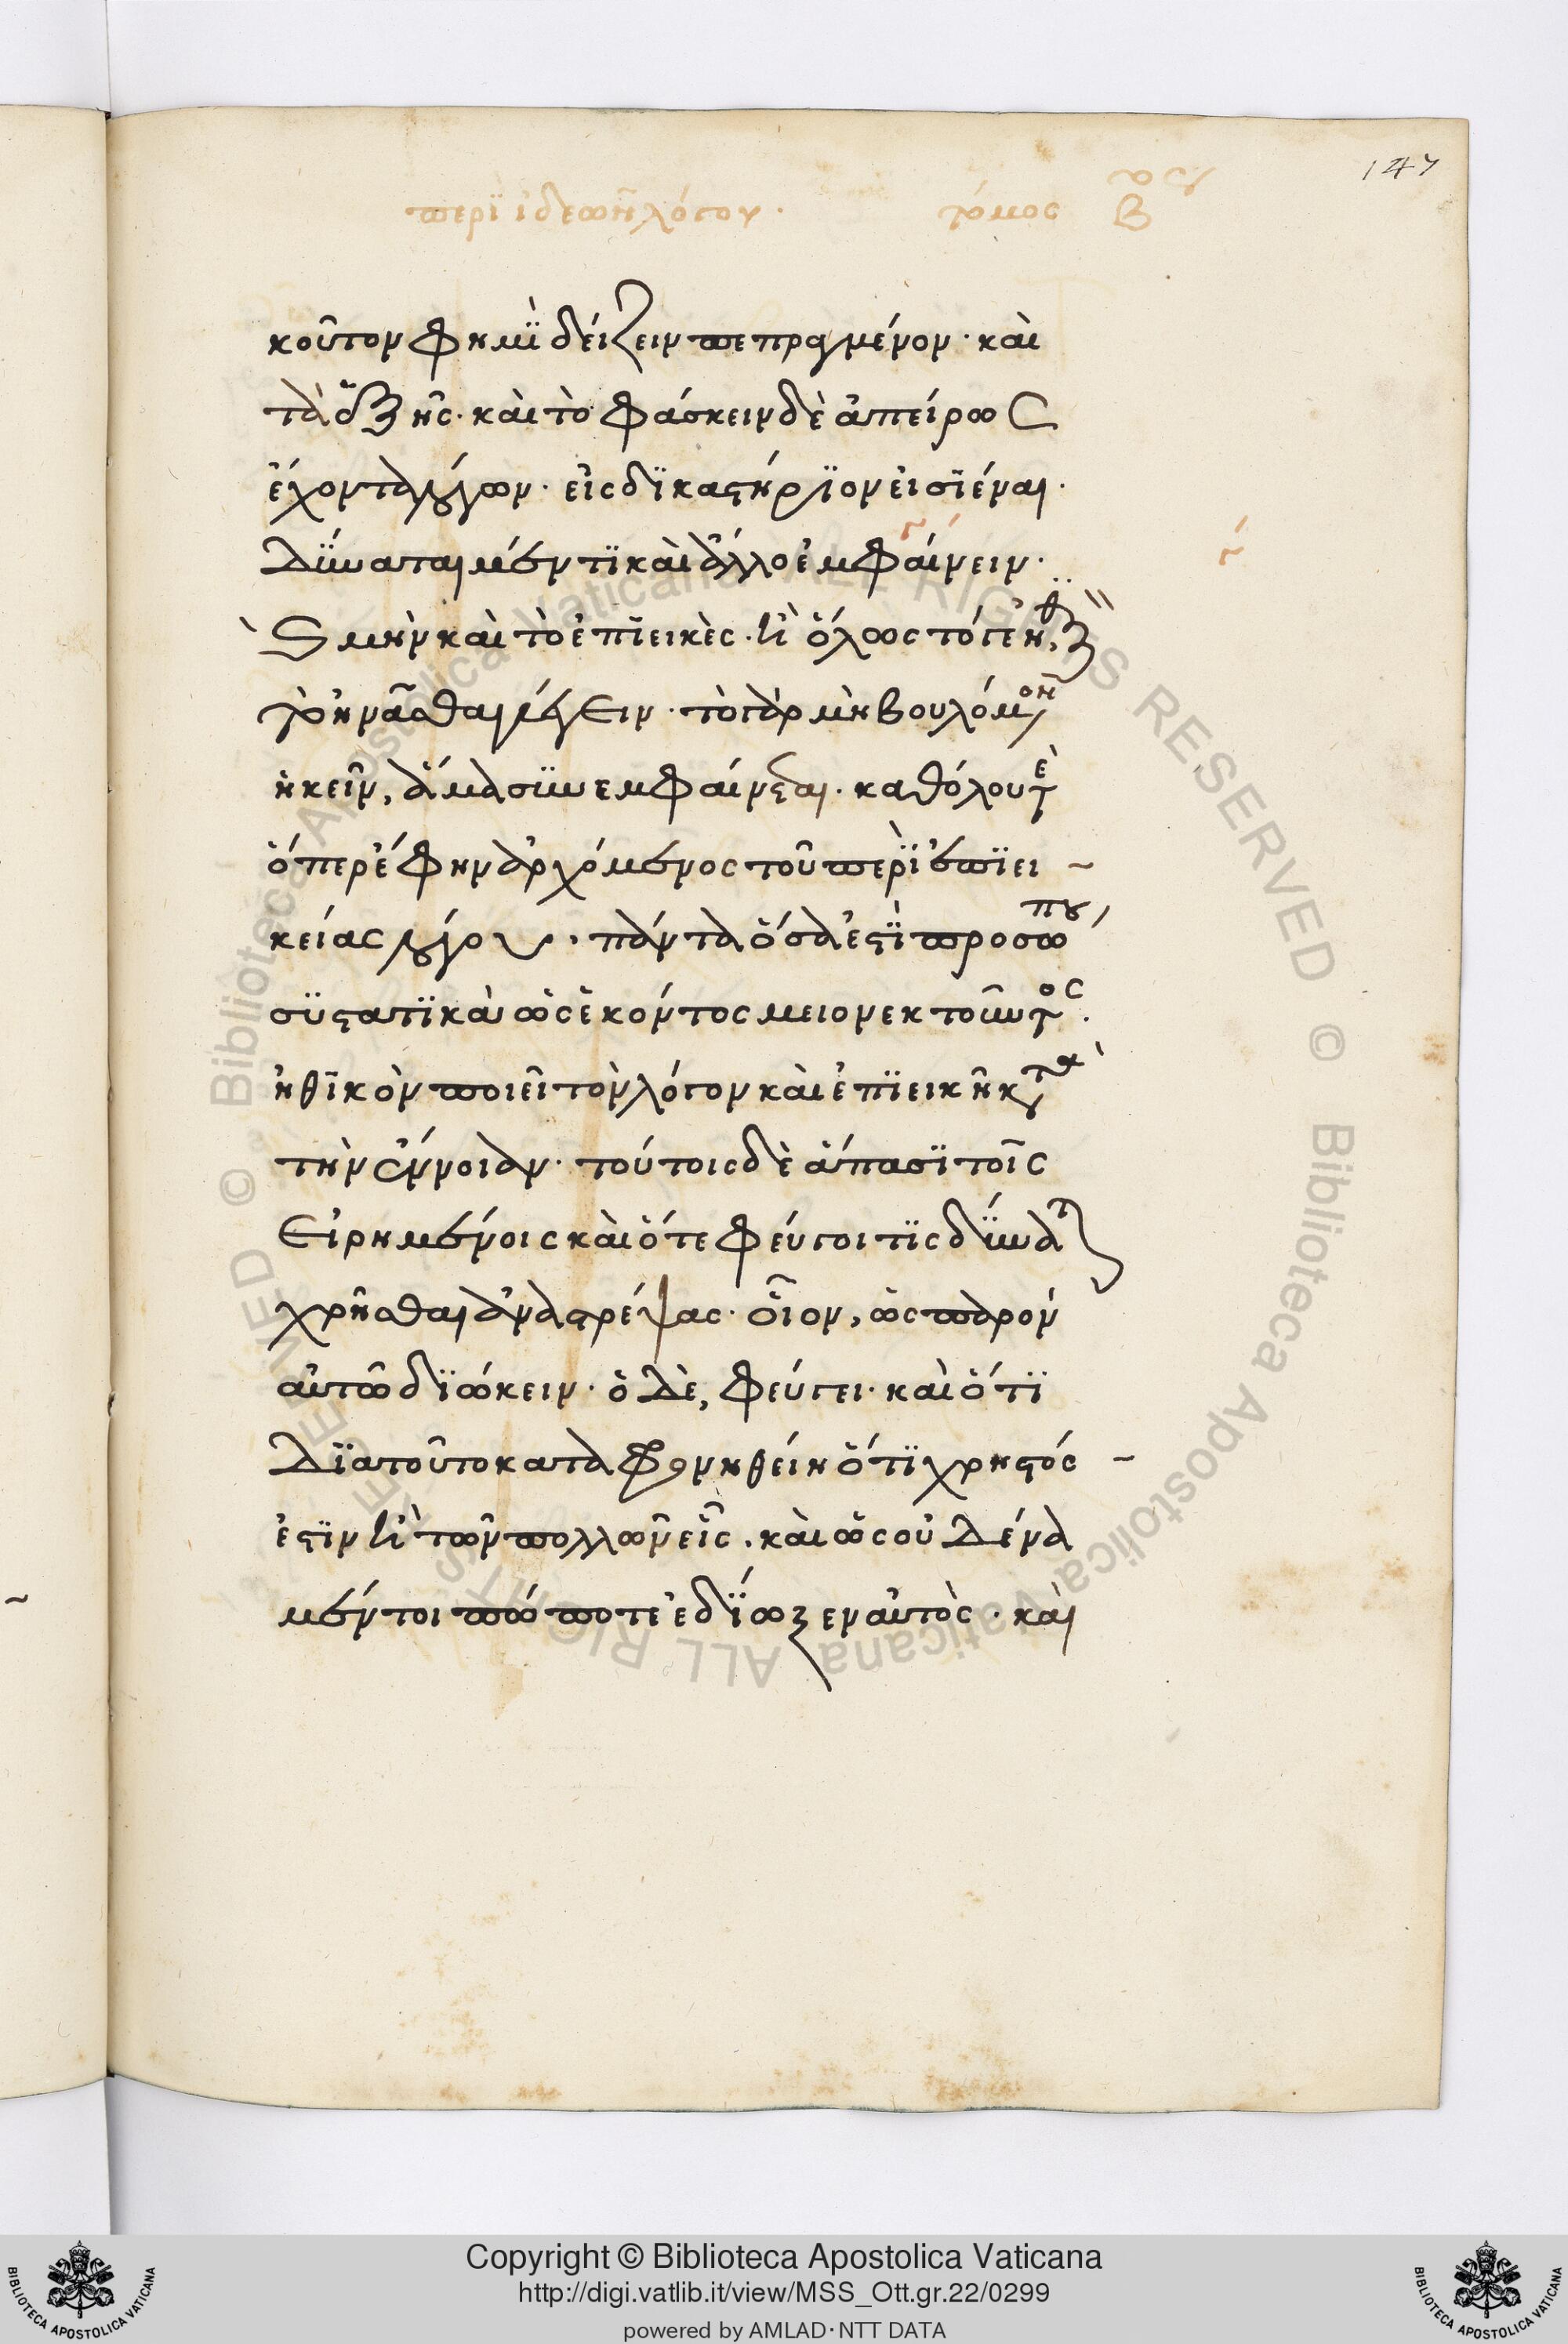 147
περὶ ἰδεῶν λόγου. τόμος Β ος
κοῦτον φημὶ δείξειν πεπραγμένον· καὶ
τὰ ἑξῆς· καὶ τὸ φάσκειν δὲ ἀπείρως
ἔχοντα λόγων· εἰς δικαστήριον εἰσιέναι·
δύναται μέν τι καὶ ἄλλο ἐμφαίνειν·
οὐ μὴν καὶ τὸ ἐπιεικὲς· ἢ ὅλως τό γε
λέγειν· τὸ γὰρ μὴ βουλόμενον
ἥκειν, ἅμα συνεμφαίνεται. καθόλου τε
ὅπερ ἔφην ἀρχόμενος τοῦ περὶ ἐπιει~
κείας λόγου, πάντα ὅσα ἐστὶ προσώπου
συστατικὰ ὡς ἑκόντος μειονεκτοῦντος.
ἠθικὸν ποιεῖ τὸν λόγον καὶ ἐπιεικῆ κατὰ
τὴν ἔννοιαν· τούτοις δὲ ἅπασι τοῖς
εἰρημένοις καὶ ὅτε φεύγοι τις δύναται
χρῆσθαι ἀναστρέψας· οἷον, ὡς παρὸν
αὐτῷ διώκειν· ὁ δὲ, φεύγει· καὶ ὅτι
διὰ τοῦτο καταφρονηθείη ὅτι χρηστός ~
ἐστιν ἢ τῶν πολλῶν εἷς. καὶ ὡς οὐδένα
μέντοι πώποτε ἐδίωξεν αὐτὸς· καὶ
Copyright © Biblioteca Apostolica Vaticana
http://digi.vatlib.it/view/MSS_Ott.gr.22/0299
powered by AMLAD·NTT DATA
BIBLIOTECA APOSTOLICA VATICANA
BIBLIOTECA APOSTOLICA VATICANA